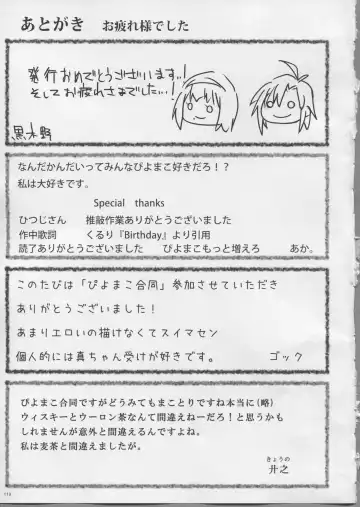 あとがき　お疲れ様でした
発行おめでとうございます！！
そしてお疲れさまでした…！
黒木野
なんだかんだいってみんなぴよまこ好きだろ！？
私は大好きです。
Special　thanks
ひつじさん　　推敲作業ありがとうございました
作中歌詞　　くるり『Birthday』より引用
読了ありがとうございました　　ぴよまこもっと増えろ　　あか。
このたびは「ぴよまこ合同」参加させていただき
ありがとうございました！
あまりエロいの描けなくてスイマセン
個人的には真ちゃん受けが好きです。　　ゴック
ぴよまこ合同ですがどうみてもまことりですね本当に(略)
ウィスキーとウーロン茶なんて間違えねーだろ！と思うかも
しれませんが意外と間違えるんですよね。
私は麦茶と間違えましたが。
きょうの
丼之